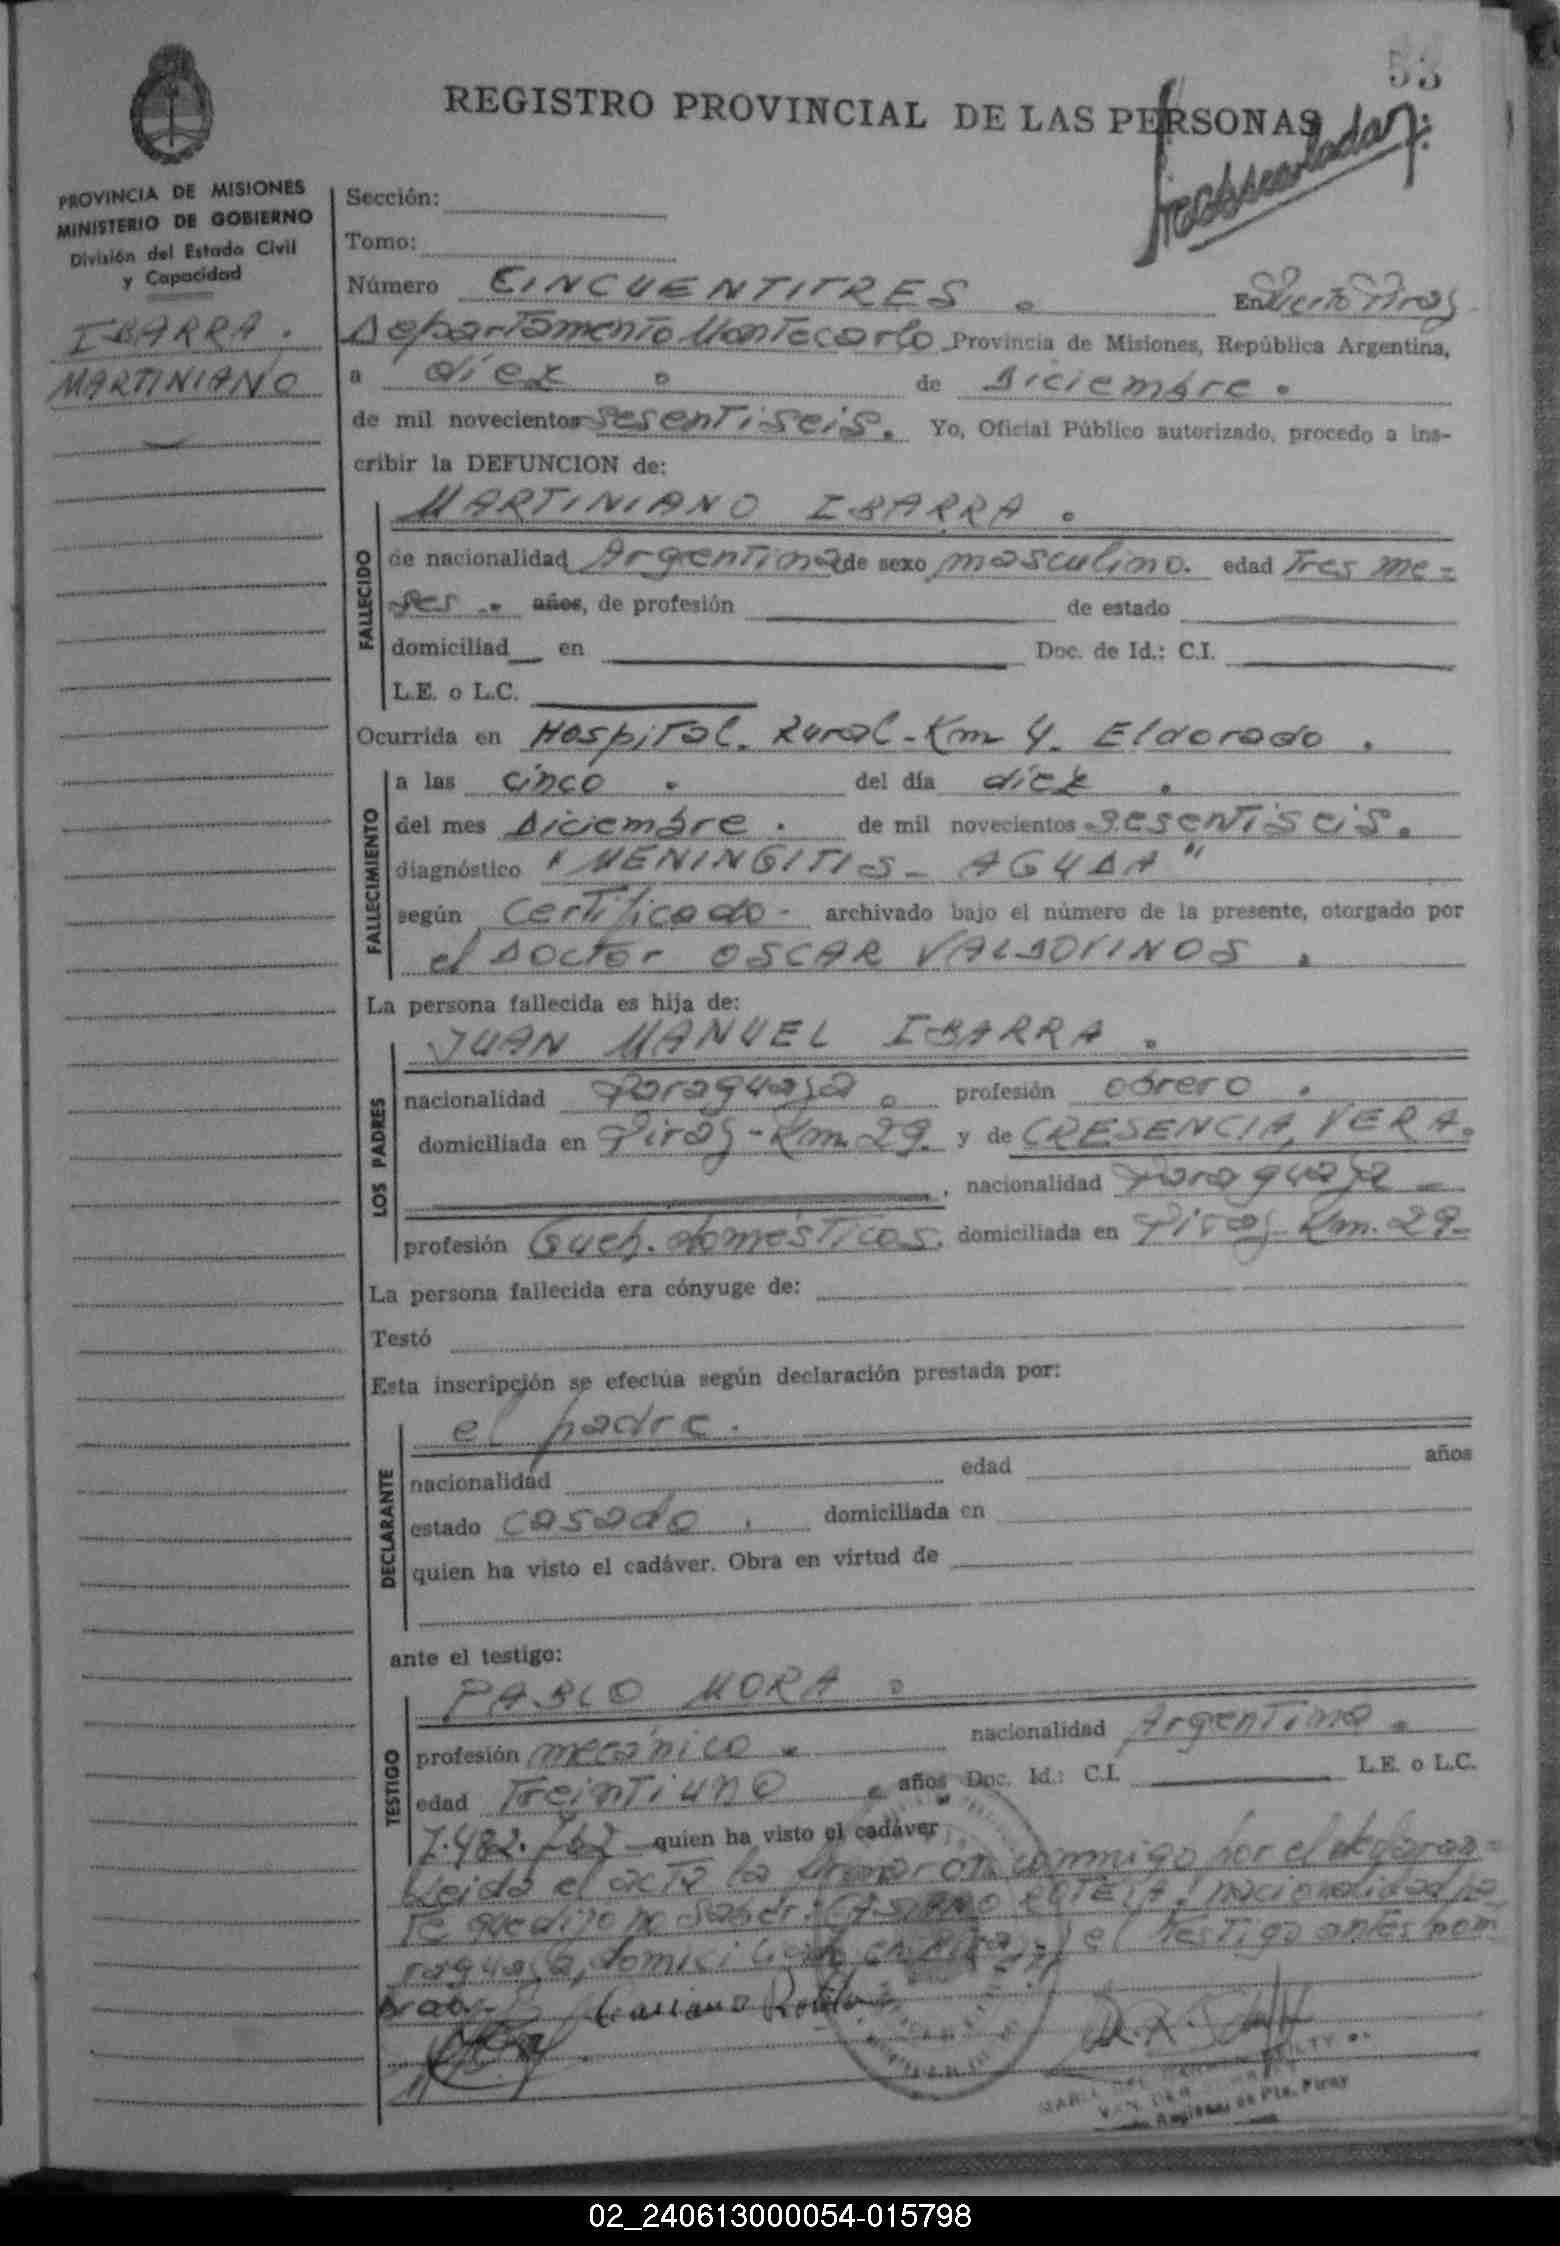 53
REGISTRO PROVINCIAL DE LAS PERSONAS
PROVINCIA DE MISIONES
MINISTERIO DE GOBIERNO
División del Estado Civil
y Capacidad
IBARRA.
MARTINIANO
Sección:
Tomo:
Número CINCUENTITRES. En Puerto Piray
Departamento Montecarlo Provincia de Misiones, República Argentina,
a diez de Diciembre.
de mil novecientos sesentiseis. Yo, Oficial Público autorizado, procedo a ins-
cribir la DEFUNCION de:
FALLECIDO
MARTINIANO IBARRA.
de nacionalidad Argentina de sexo masculino. edad Tres me-
ses. años, de profesión de estado
domiciliad en Doc. de Id.: C.I.
L.E. o L.C.
Ocurrida en Hospital. Rural-Km 4. Eldorado.
FALLECIMIENTO
a las cinco. del día diez.
del mes Diciembre. de mil novecientos sesentiseis.
diagnóstico "MENINGITIS - AGUDA"
según Certificado- archivado bajo el número de la presente, otorgado por
el Doctor OSCAR VALDOVINOS.
La persona fallecida es hija de:
LOS PADRES
JUAN MANUEL IBARRA.
nacionalidad Paraguaya. profesión obrero.
domiciliada en Piray-Km.29. y de CRESENCIA, VERA.
, nacionalidad Paraguaya -
profesión Queh. domésticos. domiciliada en Piray-Km.29-
La persona fallecida era cónyuge de:
Testó
Esta inscripción se efectúa según declaración prestada por:
DECLARANTE
el padre.
nacionalidad edad años
estado casado. domiciliada en
quien ha visto el cadáver. Obra en virtud de
ante el testigo:
TESTIGO
PABLO MORA.
profesión mecánico. nacionalidad Argentina.
edad Treintiuno. años Doc. Id.: C.I. L.E. o L.C.
7.482.762 quien ha visto el cadáver
Leida el acta la firmaron conmigo por el declaran-
te que dijo no saber: CASIANO ROTELA, nacionalidad pa
raguaya, domiciliado en Piray, y el testigo antes nom
brado.
Casiano Rotela
MARIA DEL
VAN DER
de Pto. Piray
02_240613000054-015798